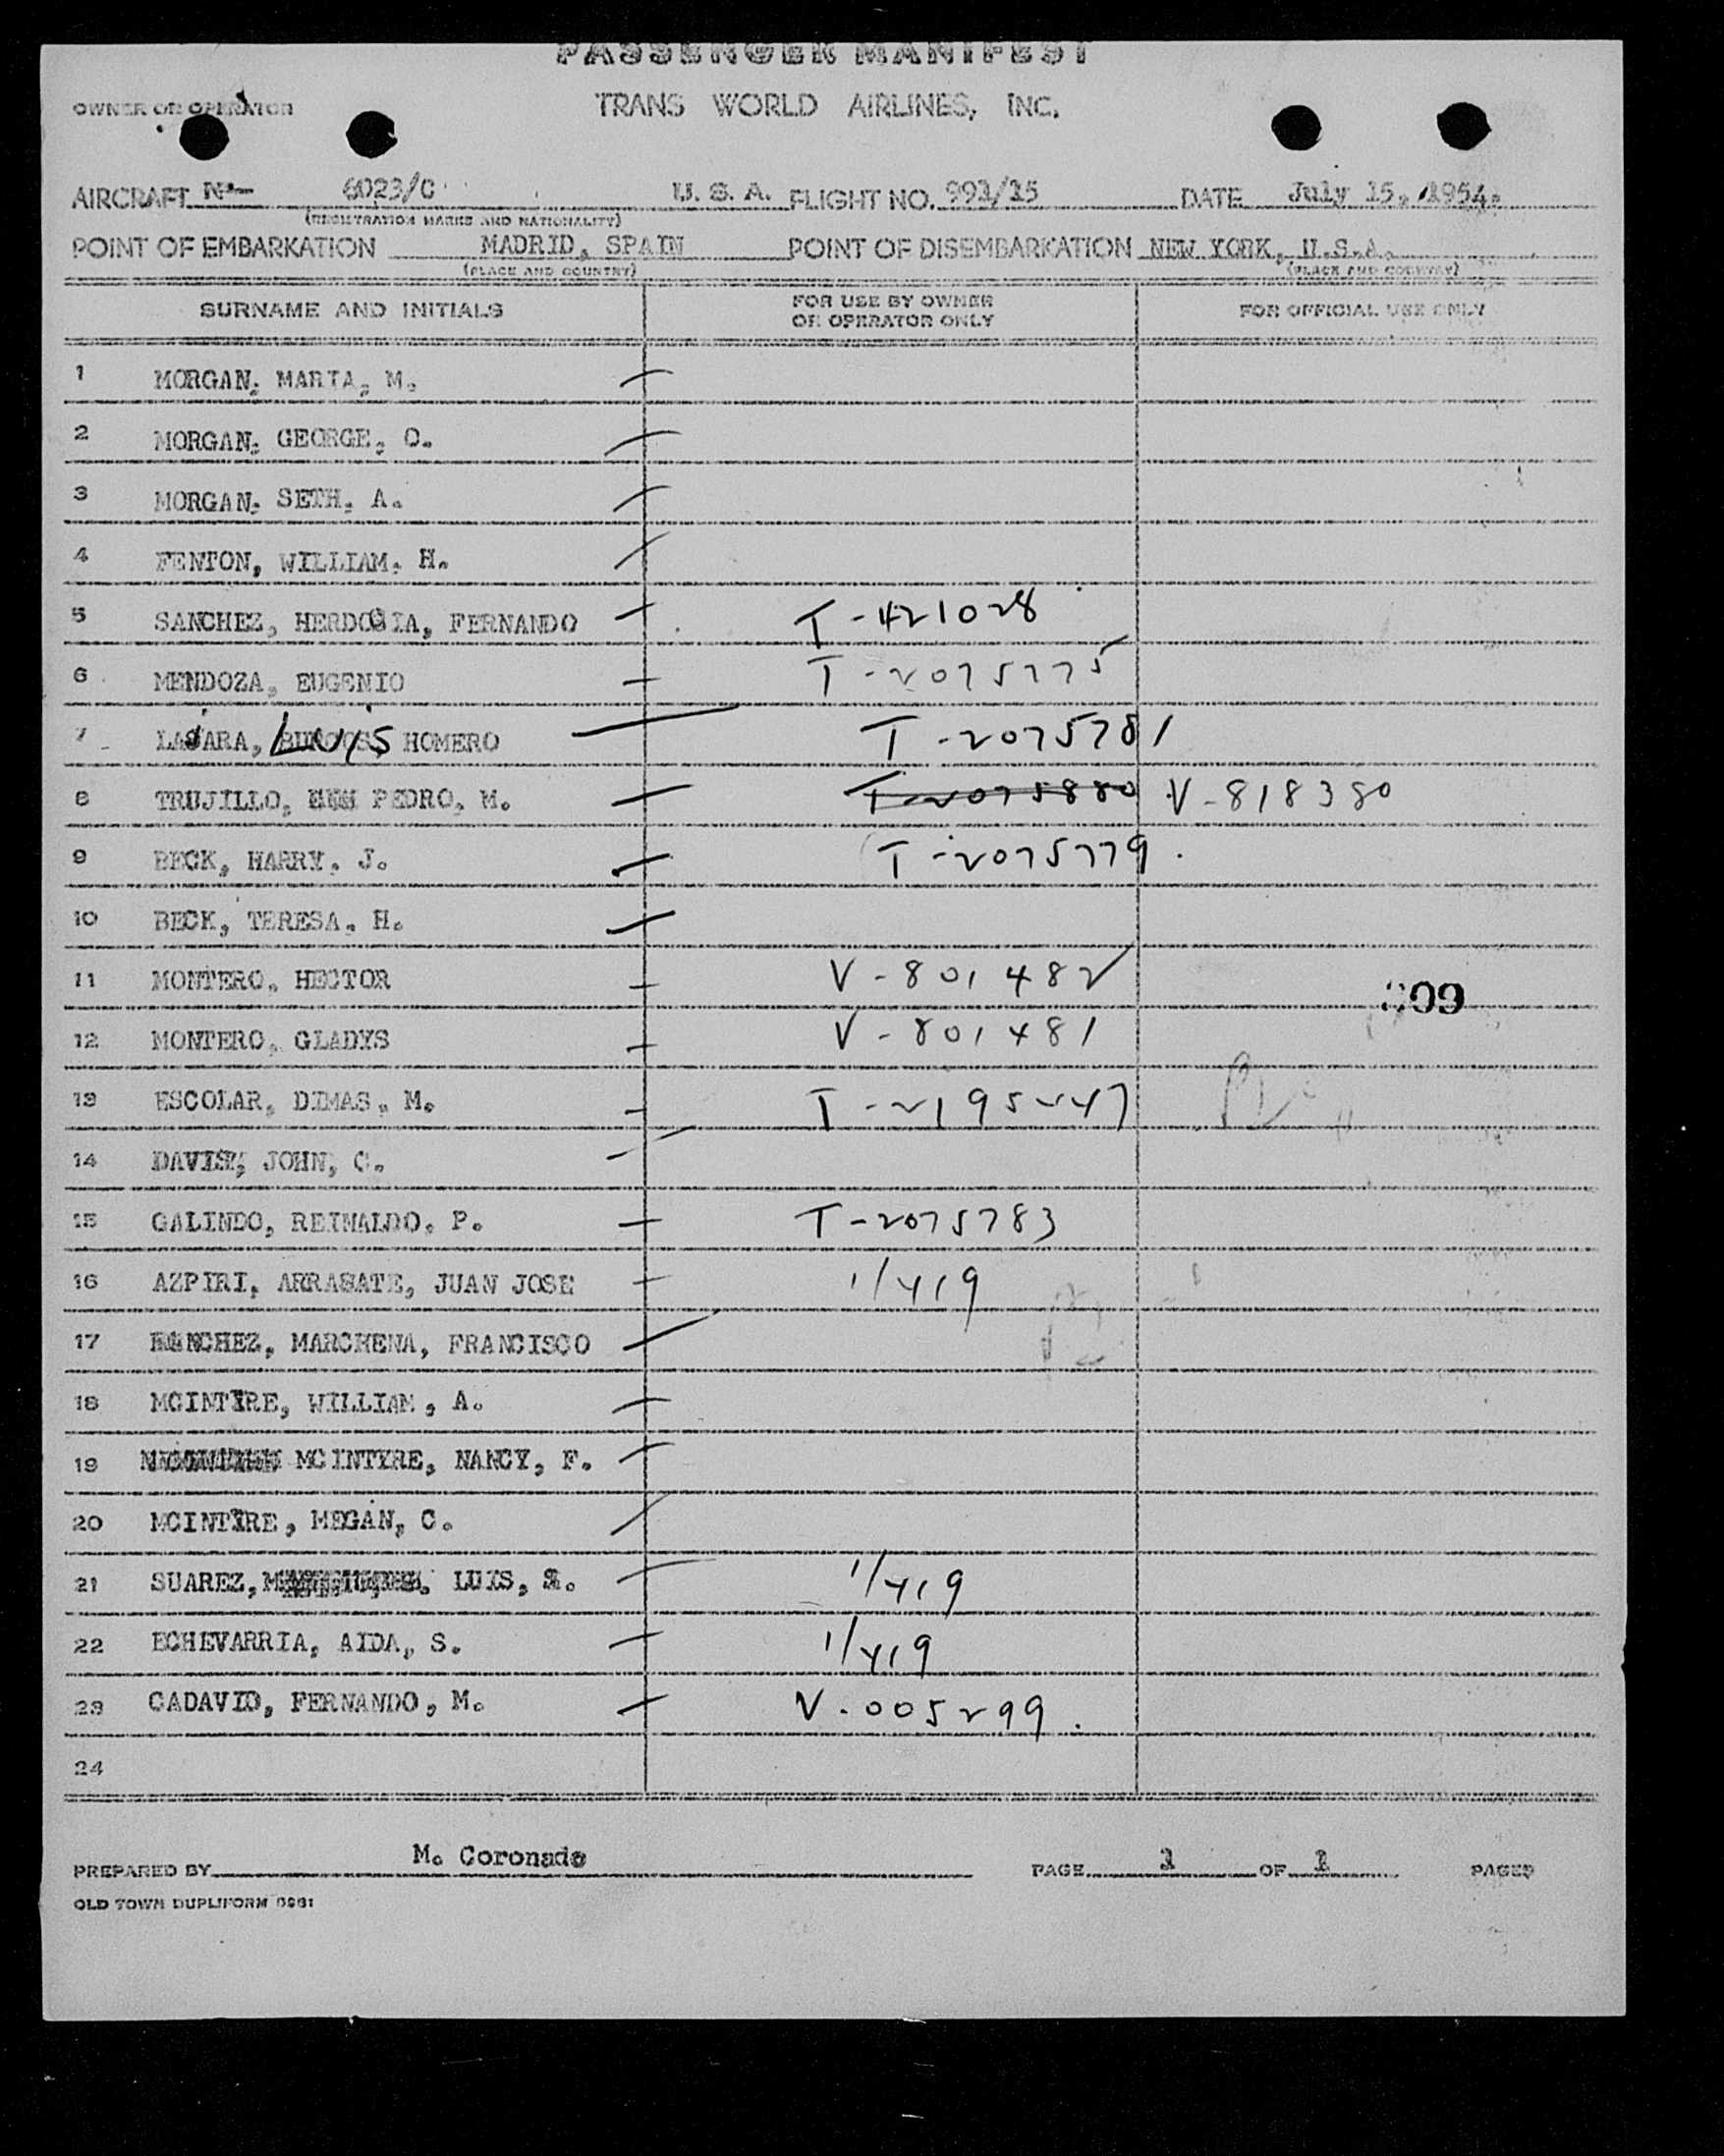 PASSENGER MANIFEST
OWNER OR OPERATOR TRANS WORLD AIRLINES, INC.
AIRCRAFT N- 6023/C U. S. A. FLIGHT NO. 991/15 DATE July 15, 1954.
(REGISTRATION MARKS AND NATIONALITY)
POINT OF EMBARKATION MADRID, SPAIN POINT OF DISEMBARKATION NEW YORK, U.S.A.
(PLACE AND COUNTRY) (PLACE AND COUNTRY)
SURNAME AND INITIALS FOR USE BY OWNER OR OPERATOR ONLY FOR OFFICIAL USE ONLY
1 MORGAN, MARTA, M.
2 MORGAN, GEORGE, C.
3 MORGAN, SETH, A.
4 FENTON, WILLIAM, H.
5 SANCHEZ, HERDOGIA, FERNANDO T-421028
6 MENDOZA, EUGENIO T-2075775
7 LAJARA, LUIS HOMERO T-2075781
8 TRUJILLO, PEDRO, M. T-2075880 V-818380
9 BECK, HARRY, J. T-2075779.
10 BECK, TERESA, H.
11 MONTERO, HECTOR V-801482
12 MONTERO, GLADYS V-801481
13 ESCOLAR, DIMAS, M. T-2195247
14 DAVIS, JOHN, C.
15 GALINDO, REINALDO, P. T-2075783
16 AZPIRI, ARRASATE, JUAN JOSE 1/419
17 SANCHEZ, MARCHENA, FRANCISCO
18 MCINTYRE, WILLIAM, A.
19 MCINTYRE, NANCY, F.
20 MCINTYRE, MEGAN, C.
21 SUAREZ, LUIS, 1/419
22 ECHEVARRIA, AIDA, S. 1/419
23 CADAVID, FERNANDO, M. V-005299.
24
PREPARED BY M. Coronado PAGE 1 OF 1 PAGES
OLD TOWN DUPLIFORM